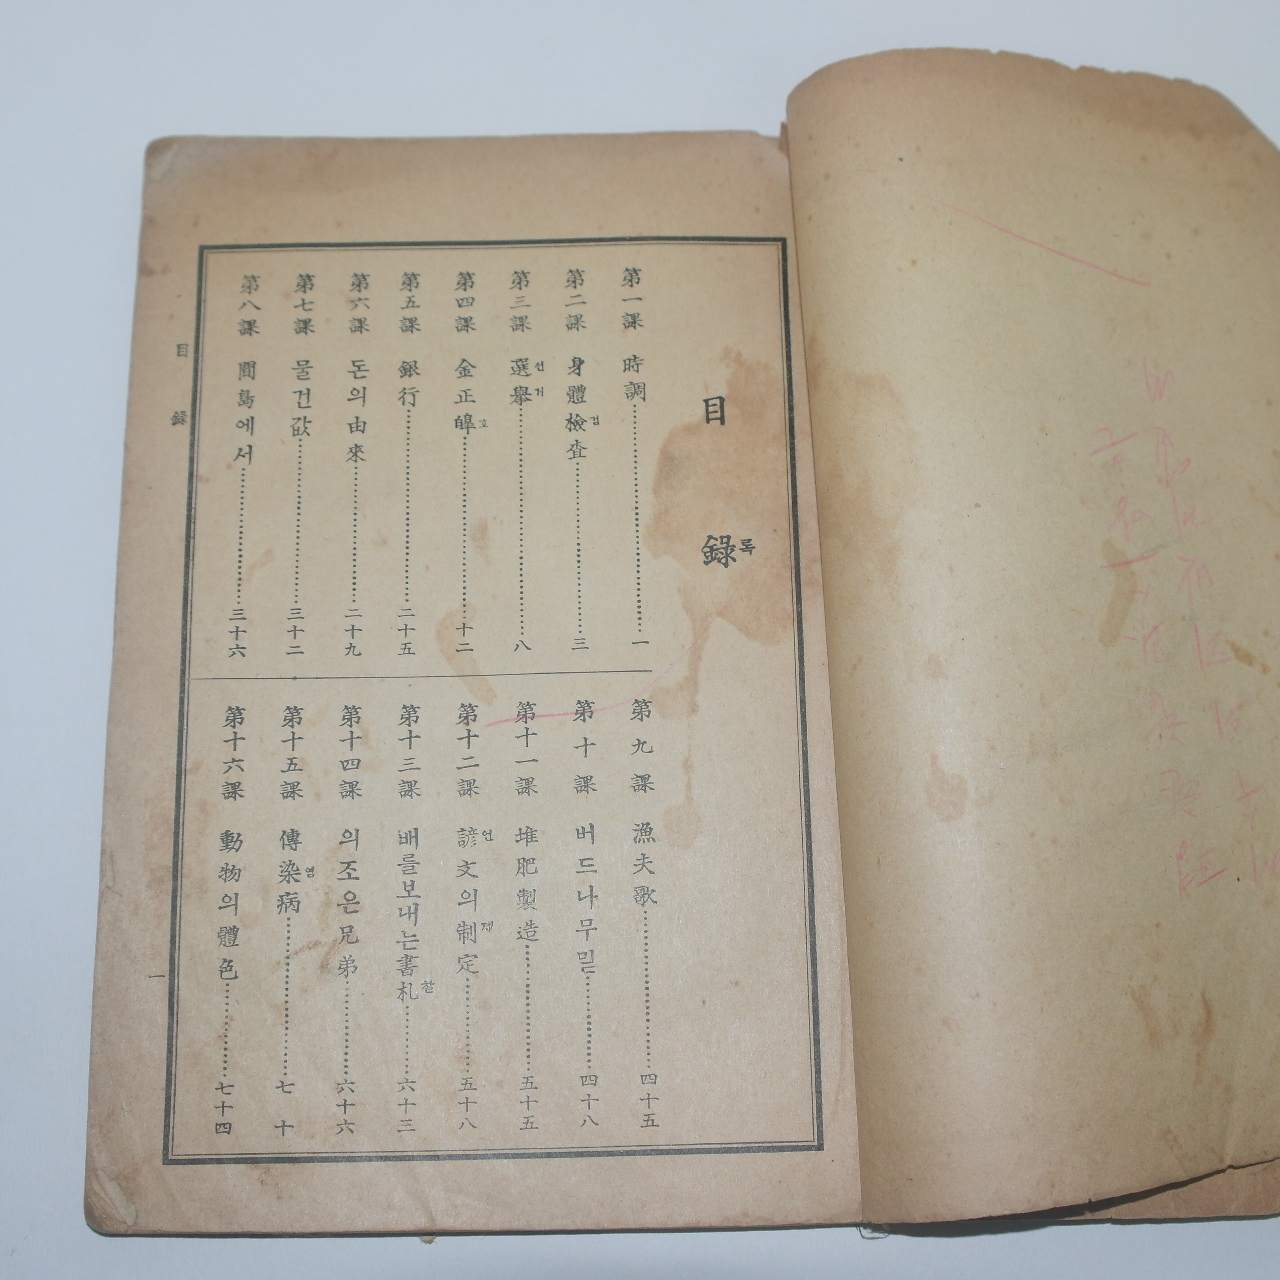 目錄록
第一課 時調 一
第二課 身體檢검査 三
第三課 選선擧거 八
第四課 金正皥호 十二
第五課 銀行 二十五
第六課 돈의由來 二十九
第七課 물건값 三十二
第八課 間島에서 三十六
第九課 漁夫歌 四十五
第十課 버드나무믿 四十八
第十一課 堆肥製造 五十五
第十二課 諺언文의制제定 五十八
第十三課 배를보내는書札찰 六十三
第十四課 의조은兄弟 六十六
第十五課 傳染염病 七十
第十六課 動物의體色 七十四
目錄
一